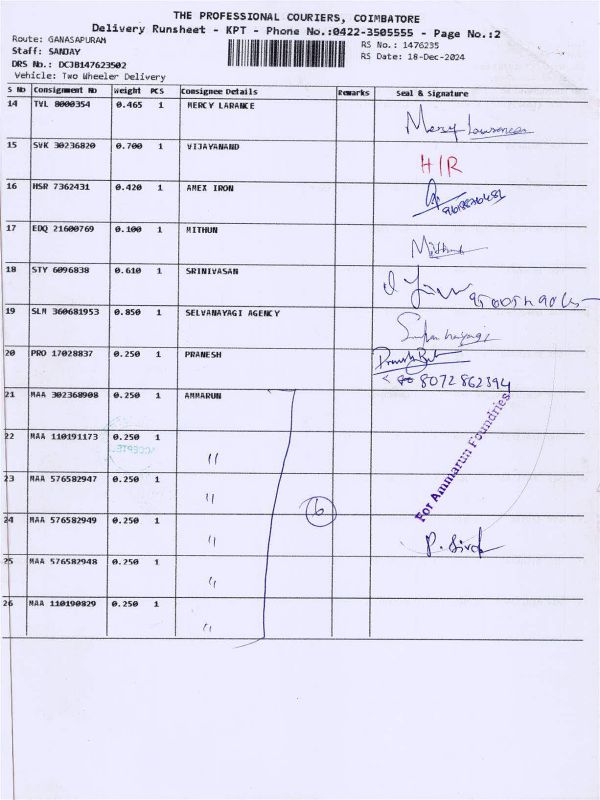 THE PROFESSIONAL COURIERS, COIMBATORE
Delivery Runsheet - KPT - Phone No.:0422-3505555 - Page No.:2
Route: GANASAPURAM
RS No.: 1476235
Staff: SANJAY
RS Date: 18-Dec-2024
DRS No.: DCJB147623502
Vehicle: Two Wheeler Delivery
S No Consignment No Weight PCS Consignee Details Remarks Seal & Signature
14 TVL 8000354 0.465 1 MERCY LARANCE
Mercy Lawrence
15 SVK 30236820 0.700 1 VIJAYANAND
H/R
16 HSR 7362431 0.420 1 AMEX IRON
17 EDQ 21600769 0.100 1 MITHUN
Mithun
18 STY 6096838 0.610 1 SRINIVASAN
19 SLM 360681953 0.850 1 SELVANAYAGI AGENCY
20 PRO 17028837 0.250 1 PRANESH
8072862394
21 MAA 302368908 0.250 1 AMMARUN
22 MAA 110191173 0.250 1 "
23 MAA 576582947 0.250 1 "
6
For Ammarun Foundries
24 MAA 576582949 0.250 1 "
25 MAA 576582948 0.250 1 "
26 MAA 110190829 0.250 1 "